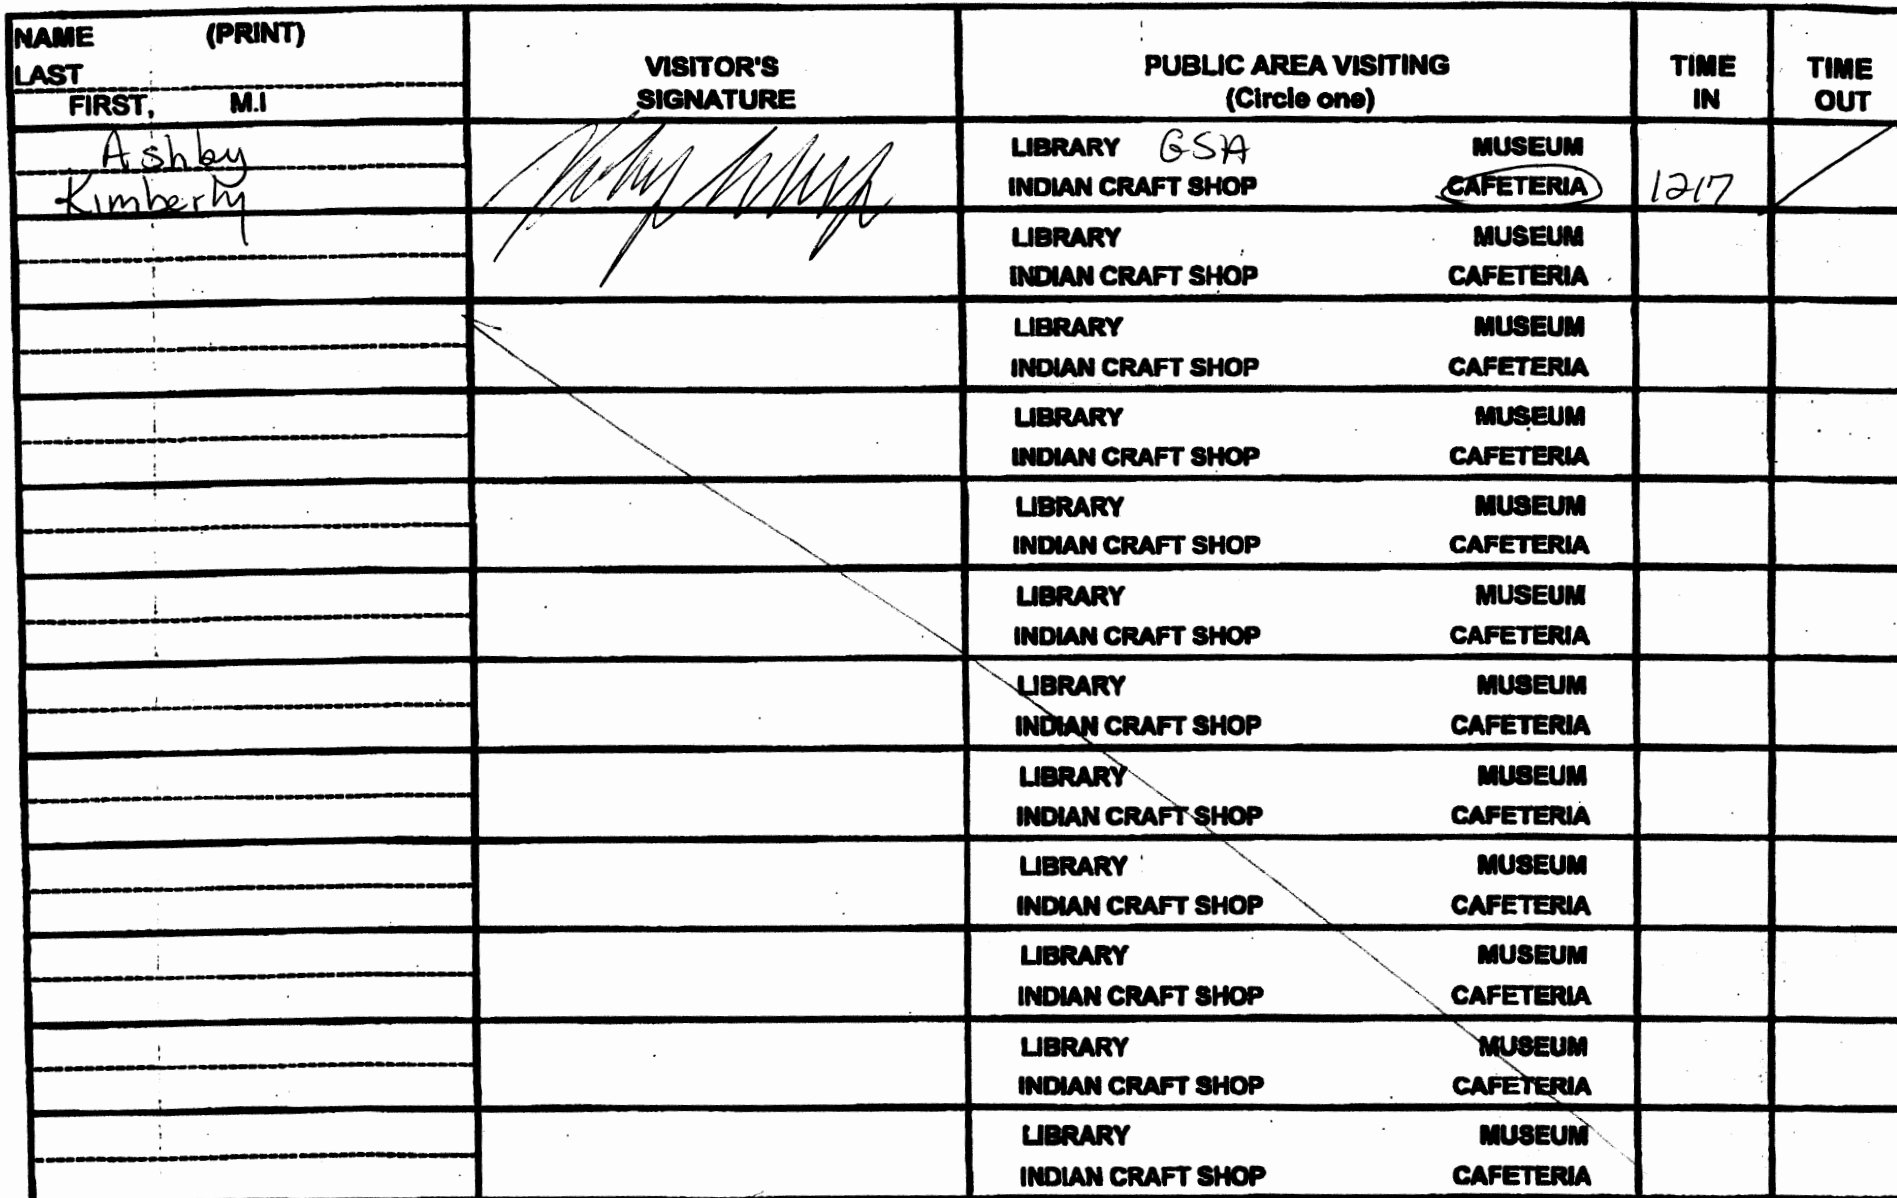 NAME (PRINT)
LAST
FIRST, M.I
VISITOR'S
SIGNATURE
PUBLIC AREA VISITING
(Circle one)
TIME
IN
TIME
OUT
Ashby
Kimberly
LIBRARY GSA MUSEUM
INDIAN CRAFT SHOP CAFETERIA
1217
LIBRARY MUSEUM
INDIAN CRAFT SHOP CAFETERIA
LIBRARY MUSEUM
INDIAN CRAFT SHOP CAFETERIA
LIBRARY MUSEUM
INDIAN CRAFT SHOP CAFETERIA
LIBRARY MUSEUM
INDIAN CRAFT SHOP CAFETERIA
LIBRARY MUSEUM
INDIAN CRAFT SHOP CAFETERIA
LIBRARY MUSEUM
INDIAN CRAFT SHOP CAFETERIA
LIBRARY MUSEUM
INDIAN CRAFT SHOP CAFETERIA
LIBRARY MUSEUM
INDIAN CRAFT SHOP CAFETERIA
LIBRARY MUSEUM
INDIAN CRAFT SHOP CAFETERIA
LIBRARY MUSEUM
INDIAN CRAFT SHOP CAFETERIA
LIBRARY MUSEUM
INDIAN CRAFT SHOP CAFETERIA